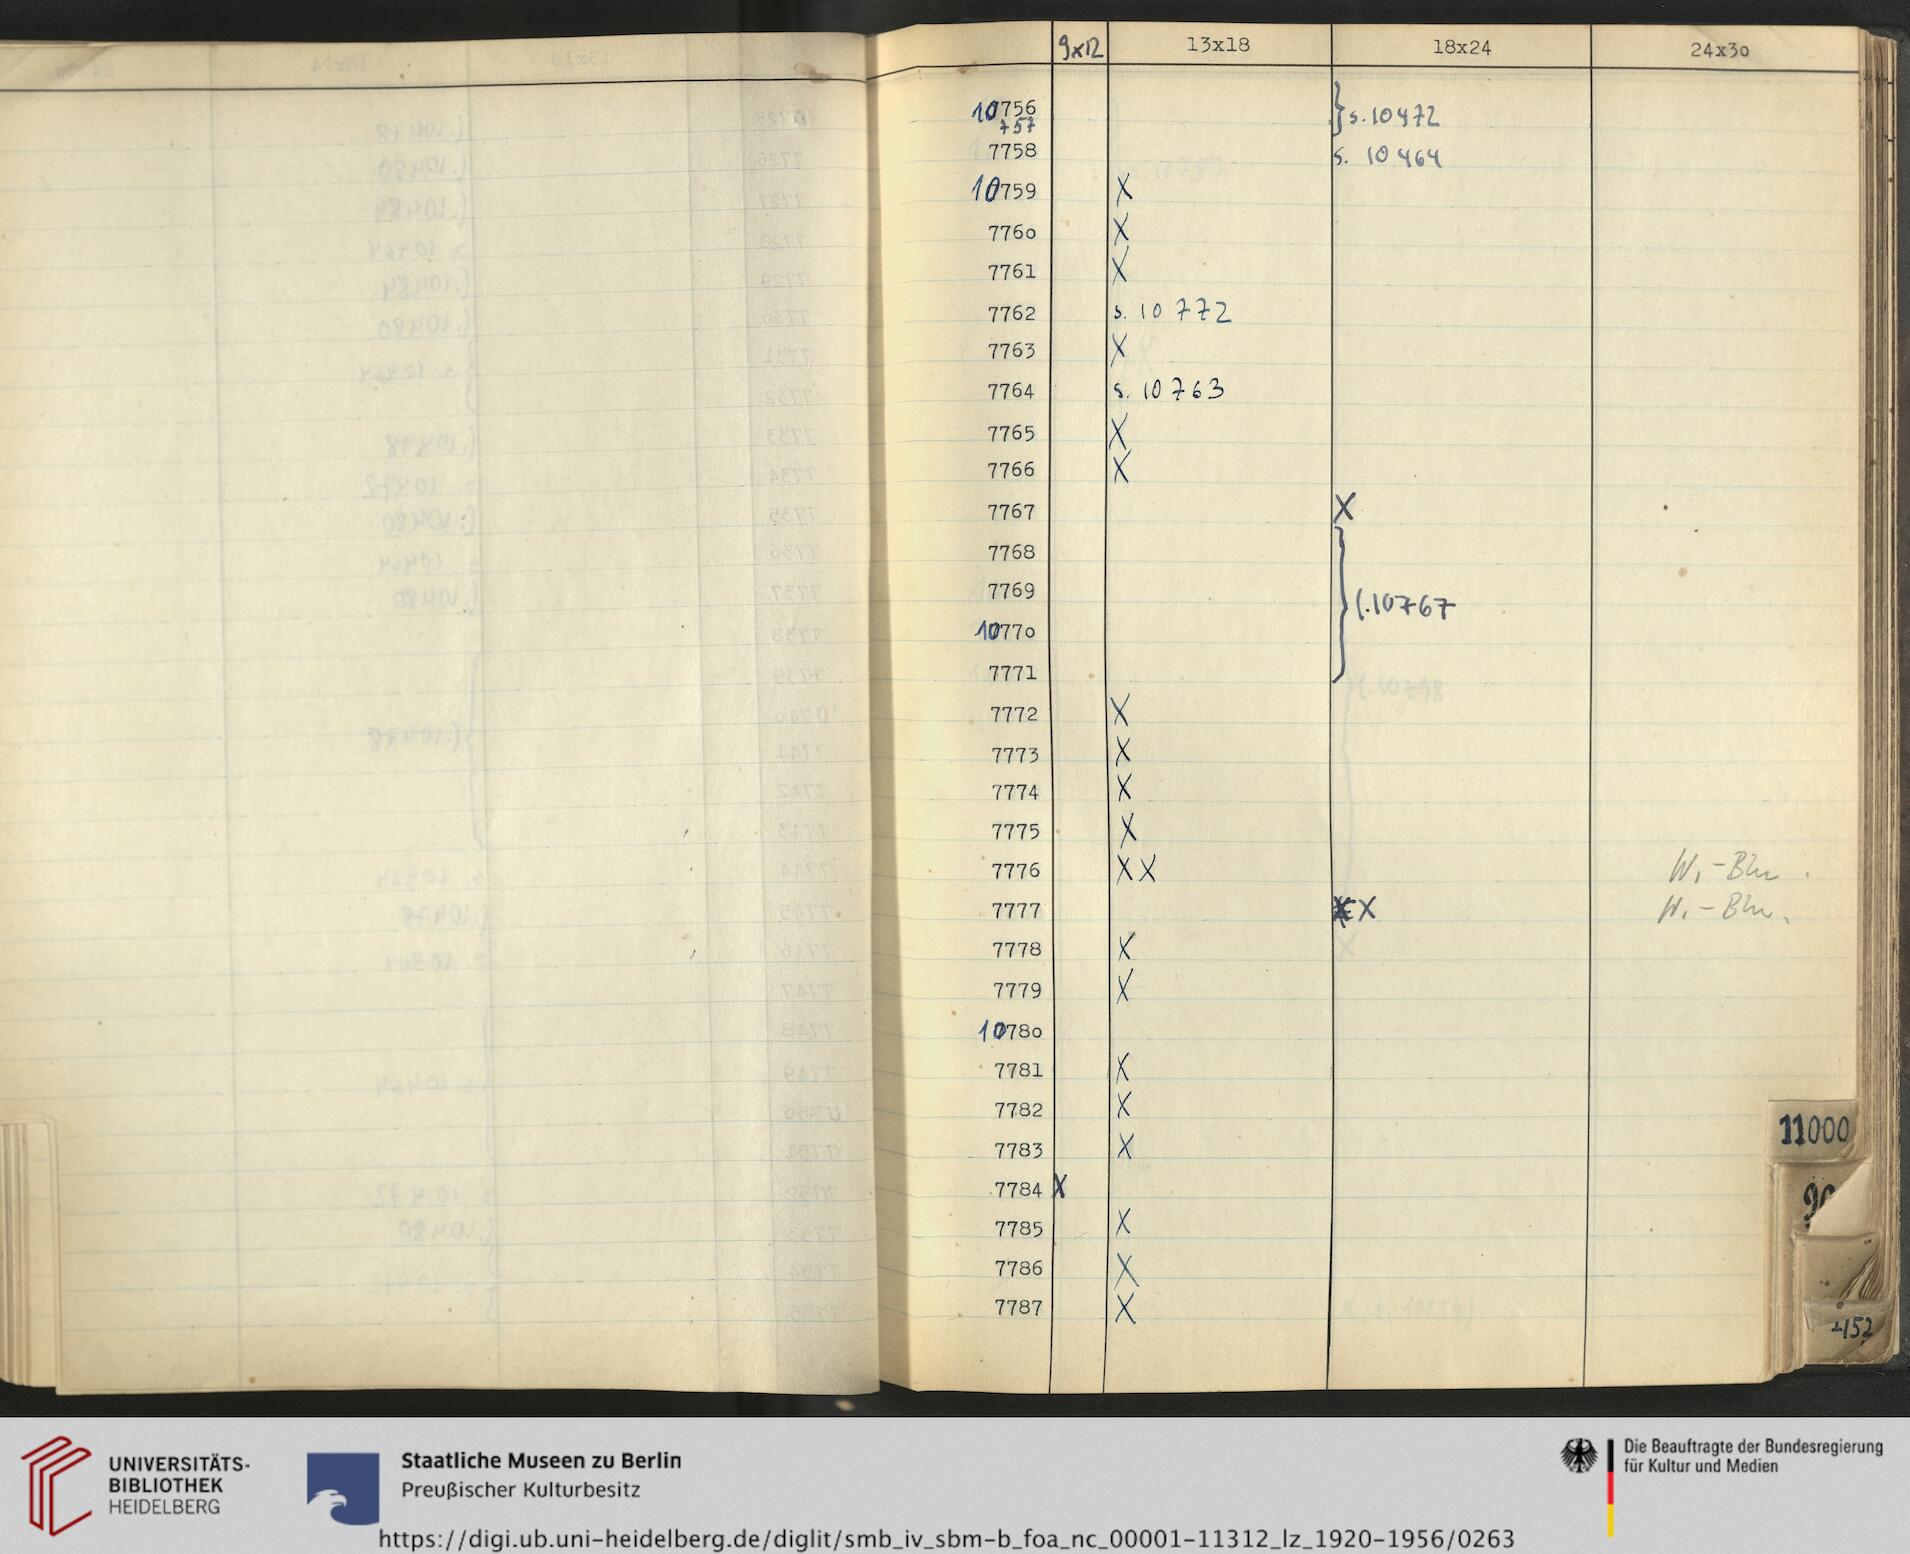 9x12 13x18 18x24 24x30
10756 } s. 10472
757
7758 s. 10464
10759 X
7760 X
7761 X
7762 s. 10772
7763 X
7764 s. 10763
7765 X
7766 X
7767 X
7768
7769 } s. 10767
10770
7771
7772 X
7773 X
7774 X
7775 X
7776 X X W.-Blu
7777 X W.-Blu.
7778 X
7779 X
10780
7781 X
7782 X
7783 X
7784 X
7785 X
7786 X
7787 X
11000
UNIVERSITÄTS-
BIBLIOTHEK
HEIDELBERG
Staatliche Museen zu Berlin
Preußischer Kulturbesitz
Die Beauftragte der Bundesregierung
für Kultur und Medien
https://digi.ub.uni-heidelberg.de/diglit/smb_iv_sbm-b_foa_nc_00001-11312_lz_1920-1956/0263